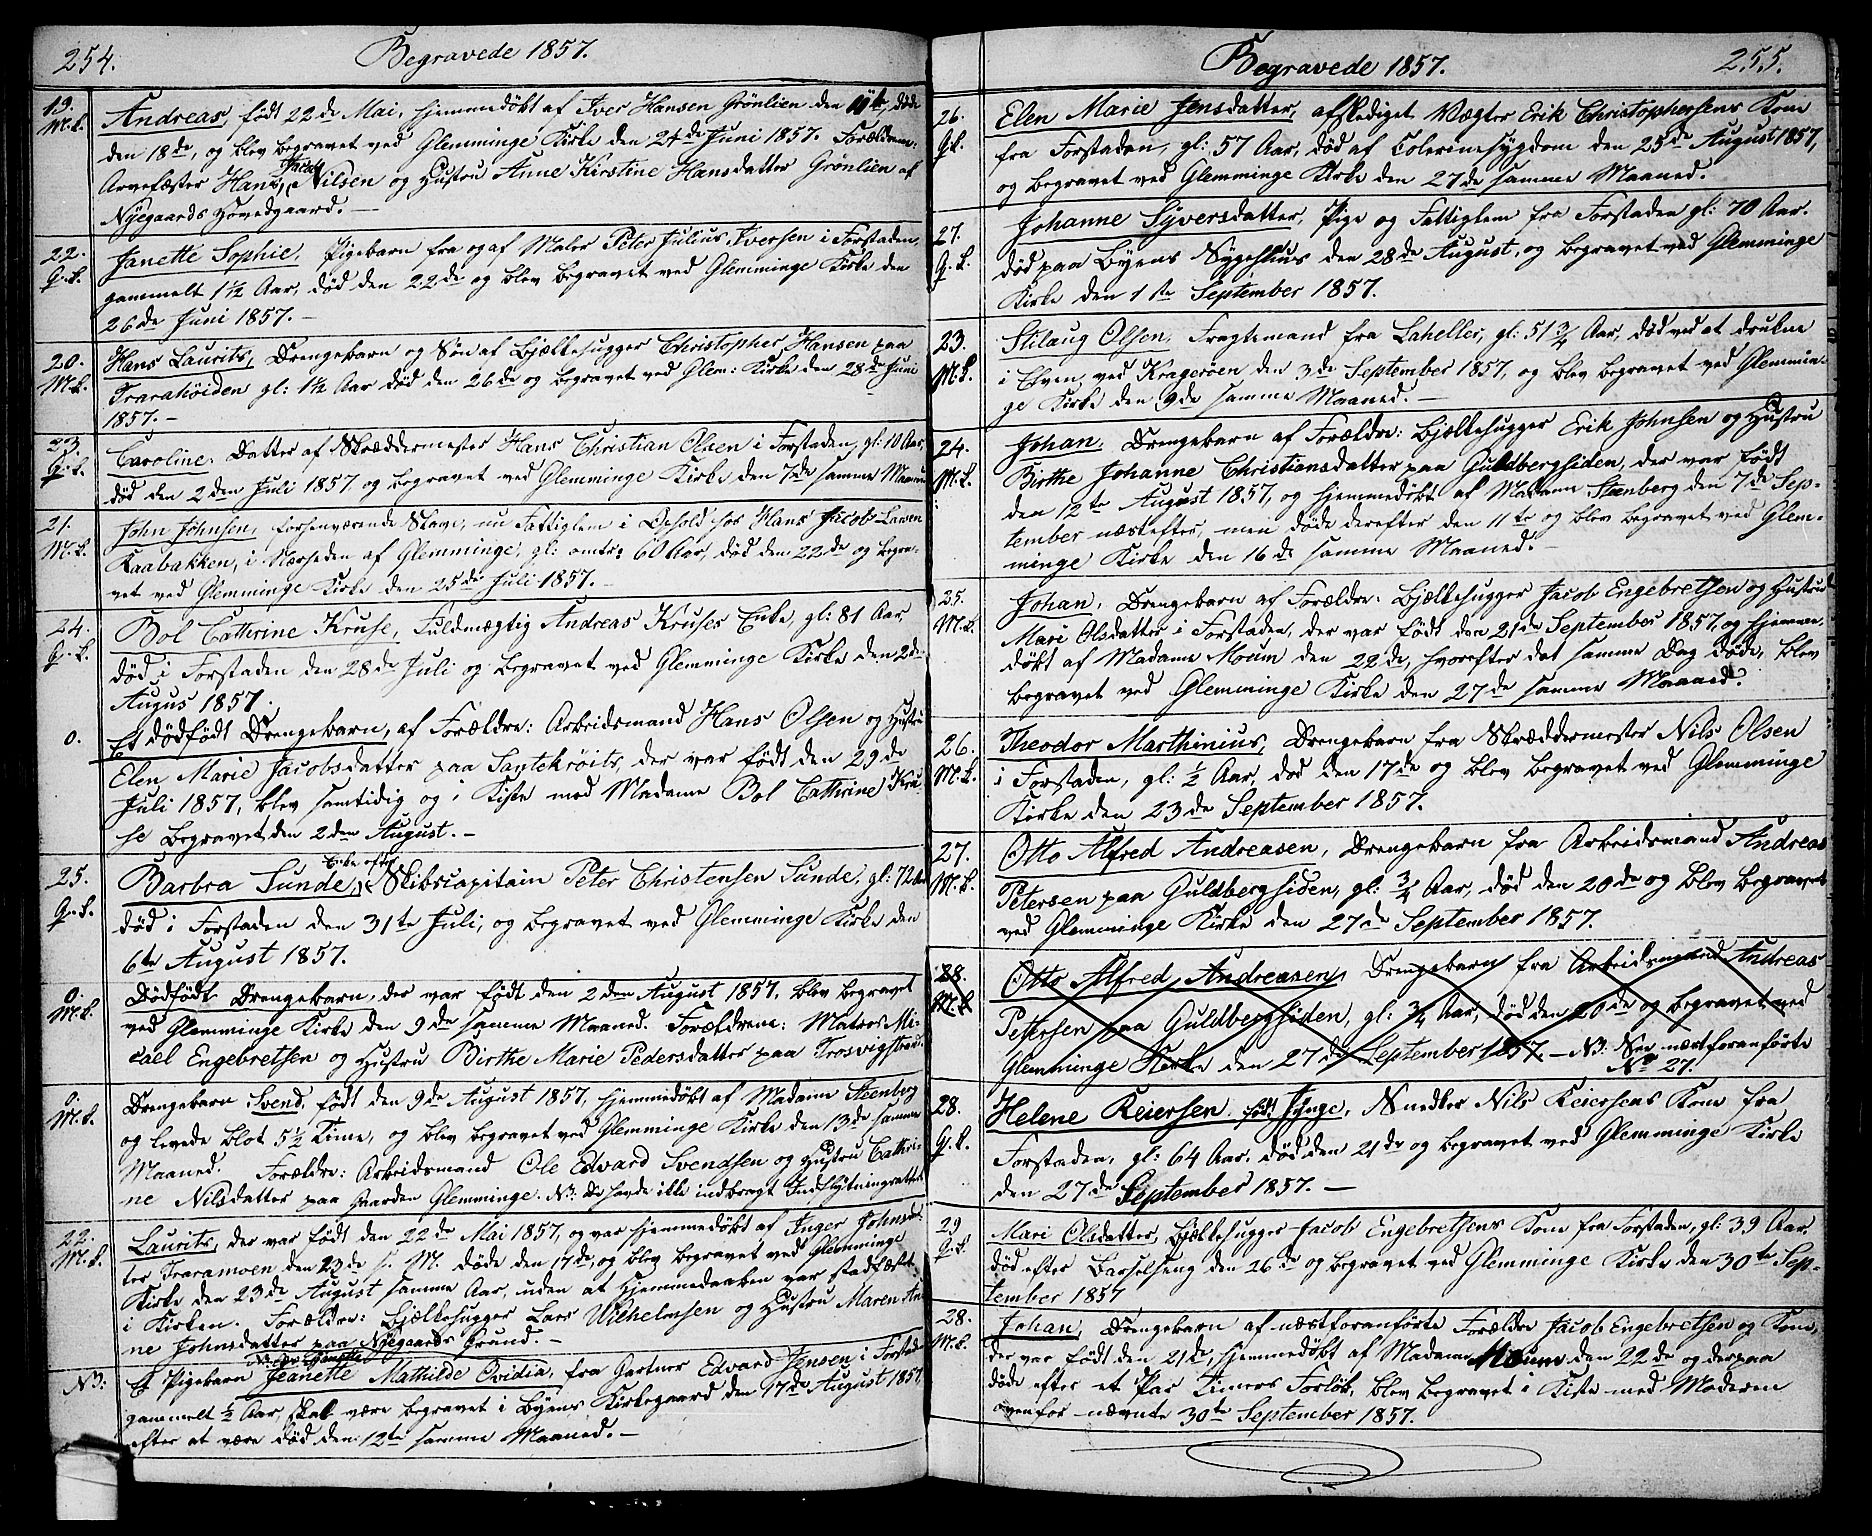 254.
Begravede 1857.
19.
M.k.
Andreas, født 22de Mai, hjemmedøbt af Iver Hansen Grønlien den 11te, døde
den 18de, og blev begravet ved Glemminge Kirke den 24de Juni 1857. Forældrene:
Arvefæster Hans Jacob Nilsen og Hustru Anne Kirstine Hansdatter Grønlien af
Nyegaards Hovedgaard. —
22.
Q.k.
Janette Sophie, Pigebarn fra og af Maler Peter Julius Iversen i Forstaden,
gammelt 1½ Aar, død den 22de og blev begravet ved Glemminge Kirke den
26de Juni 1857. —
20.
M.k.
Hans Laurits, Drengebarn og Søn af Bjælkehugger Christopher Hansen paa
Trarahøiden gl: 1¼ Aar død den 26de og begravet ved Glem: Kirke den 28de Juni
1857. —
23.
Q.k.
Caroline, Datter af Skræddermester Hans Christian Olsen i Forstaden, gl: 10 Aar,
død den 2den Juli 1857 og begravet ved Glemminge Kirke den 7de samme Maaned
21.
M.k.
John Johnsen, forhenværende Slave, nu Fattiglem i Ophold hos Hans Jacob Larsen
Kaabakken, i Nærheden af Glemminge, gl: omtr: 60 Aar, død den 22de og begra-
vet ved Glemminge Kirke den 25de Juli 1857. —
24.
Q.k.
Bol Cathrine Kruse, Fuldmægtig Andreas Kruses Enke, gl: 81 Aar,
død i Forstaden den 28de Juli og begravet ved Glemminge Kirke den 2den
Augus 1857.
0.
Et dødfødt Drengebarn, af Forældre: Arbeidsmand Hans Olsen og Hustru
Elen Marie Jacobsdatter paa Santekrøits, der var født den 29de
Juli 1857, blev samtidig og i Kiste med Madame Bol Cathrine Kru
se begravet den 2den August. —
25.
Q.k.
Barbra Sunde, Enke efter Skibscapitain Peter Christensen Sunde, gl: 72 Aar
død i Forstaden den 31te Juli, og begravet ved Glemminge Kirke den
6te August 1857.
0.
M.k.
Dødfødt Drengebarn, der var født den 2den August 1857, blev begravet
ved Glemminge Kirke den 9de samme Maaned. Forældrene: Matros Mi-
cael Engebretsen og Hustru Birthe Marie Pedersdatter paa Trosvigstrand
0.
M.k.
Drengebarn Svend, født den 9de August 1857, hjemmedøbt af Madame Steenberg
og levede blot 5½ Time, og blev begravet ved Glemminge Kirke den 13de samme
Maaned. Forældre: Arbeidsmand Ole Edvard Svendsen og Hustru Cathri-
ne Nilsdatter paa Gaarden Glemminge. NB: De havde ikke indbragt Indflytningsattest
22.
M.k.
Laurits, der var født den 22de Mai 1857, og var hjemmedøbt af Inger Johnsdat
ter Traramoen den 23de s. M. døde den 17de, og blev begravet ved Glemminge
Kirke den 23de August samme Aar, uden at Hjemmedaaben var stadfæstet
i Kirken. Forældre: Bjælkehugger Lars Wilhelmsen og Hustru Maren An
ne Johnsdatter paa Nyegaards Grund. —
NB:
Et Pigebarn Jeanette Mathilde Ovidia, fra Gartner Edvard Jensen i Forstaden
gammelt ½ Aar, skal være begravet i Byens Kirkegaard den 17de August 1857,
efter at være død den 12te samme Maaned. —
Begravede 1857.
255.
26.
Q.k.
Elen Marie Jensdatter, afskediget Vægter Erik Christophersens Kone
fra Forstaden, gl: 57 Aar, død af Colerinesygdom den 25de August 1857,
og begravet ved Glemminge Kirke den 27de samme Maaned.
27.
Q.k.
Johanne Syversdatter, Pige og Fattiglem fra Forstaden gl: 70 Aar.
død paa Byens Sygehuus den 28de August, og begravet ved Glemminge
Kirke den 1ste September 1857.
23.
M.k.
Stilaug Olsen, Fragtemand fra Laheller, gl: 51¾ Aar, død ved at drukne
i Elven ved Kragerøen den 3de September 1857, og blev begravet ved Glemmin-
ge Kirke den 9de samme Maaned. —
24.
M.k.
Johan, Drengebarn af Forældre: Bjælkehugger Erik Johnsen og Hustru
Birthe Johanne Christiansdatter paa Guldbergsiden, der var født
den 12te August 1857, og hjemmedøbt af Madame Steenberg den 7de Sep-
tember næstefter, men døde derefter den 11te og blev begravet ved Glem-
minge Kirke den 16de samme Maaned. —
25.
M.k.
Johan, Drengebarn af Forældre: Bjælkehugger Jacob Engebretsen og Hustru
Mari Olsdatter i Forstaden, der var født den 21de September 1857 og hjemme-
døbt af Madame Moum den 22de, hvorefter det samme Dag døde, blev
begravet ved Glemminge Kirke den 27de samme Maaned.
26.
M.k.
Theodor Marthinius, Drengebarn fra Skræddermester Nils Olsen
i Forstaden, gl: ½ Aar, død den 17de og blev begravet ved Glemminge
Kirke den 23de September 1857.
27.
M.k.
Otto Alfred Andreasen, Drengebarn fra Arbeidsmand Andreas
Petersen paa Guldbergsiden, gl: ¾ Aar, død den 20de og blev begravet
ved Glemminge Kirke den 27de September 1857.
28.
M.k.
Otto Alfred Andreasen, Drengebarn fra Arbeidsmand Andreas
Petersen paa Guldbergsiden, gl: ¾ Aar, død den 20de og begravet ved
Glemminge Kirke den 27de September 1857. — NB: See næstforanførte
No 27.
28.
Q.k.
Helene Reiersen født Hynge, Snedker Nils Reiersens Kone fra
Forstaden, gl: 64 Aar. død den 21de og begravet ved Glemminge Kirke
den 27de September 1857. —
29
Q.k.
Mari Olsdatter, Bjælkehugger Jacob Engebretsens Kone fra Forstaden, gl: 39 Aar.
død efter Barselseng den 26de og begravet ved Glemminge Kirke den 30te Sep-
tember 1857
28.
M.k.
Johan, Drengebarn af næstforanførte Forældre Jacob Engebretsen og Kone,
der var født den 21de, hjemmedøbt af Madame Moum den 22de og derpaa
døde efter et Par Timers Forløb, blev begravet i Kiste med Moderen
ovenfor nævnte 30te September 1857.